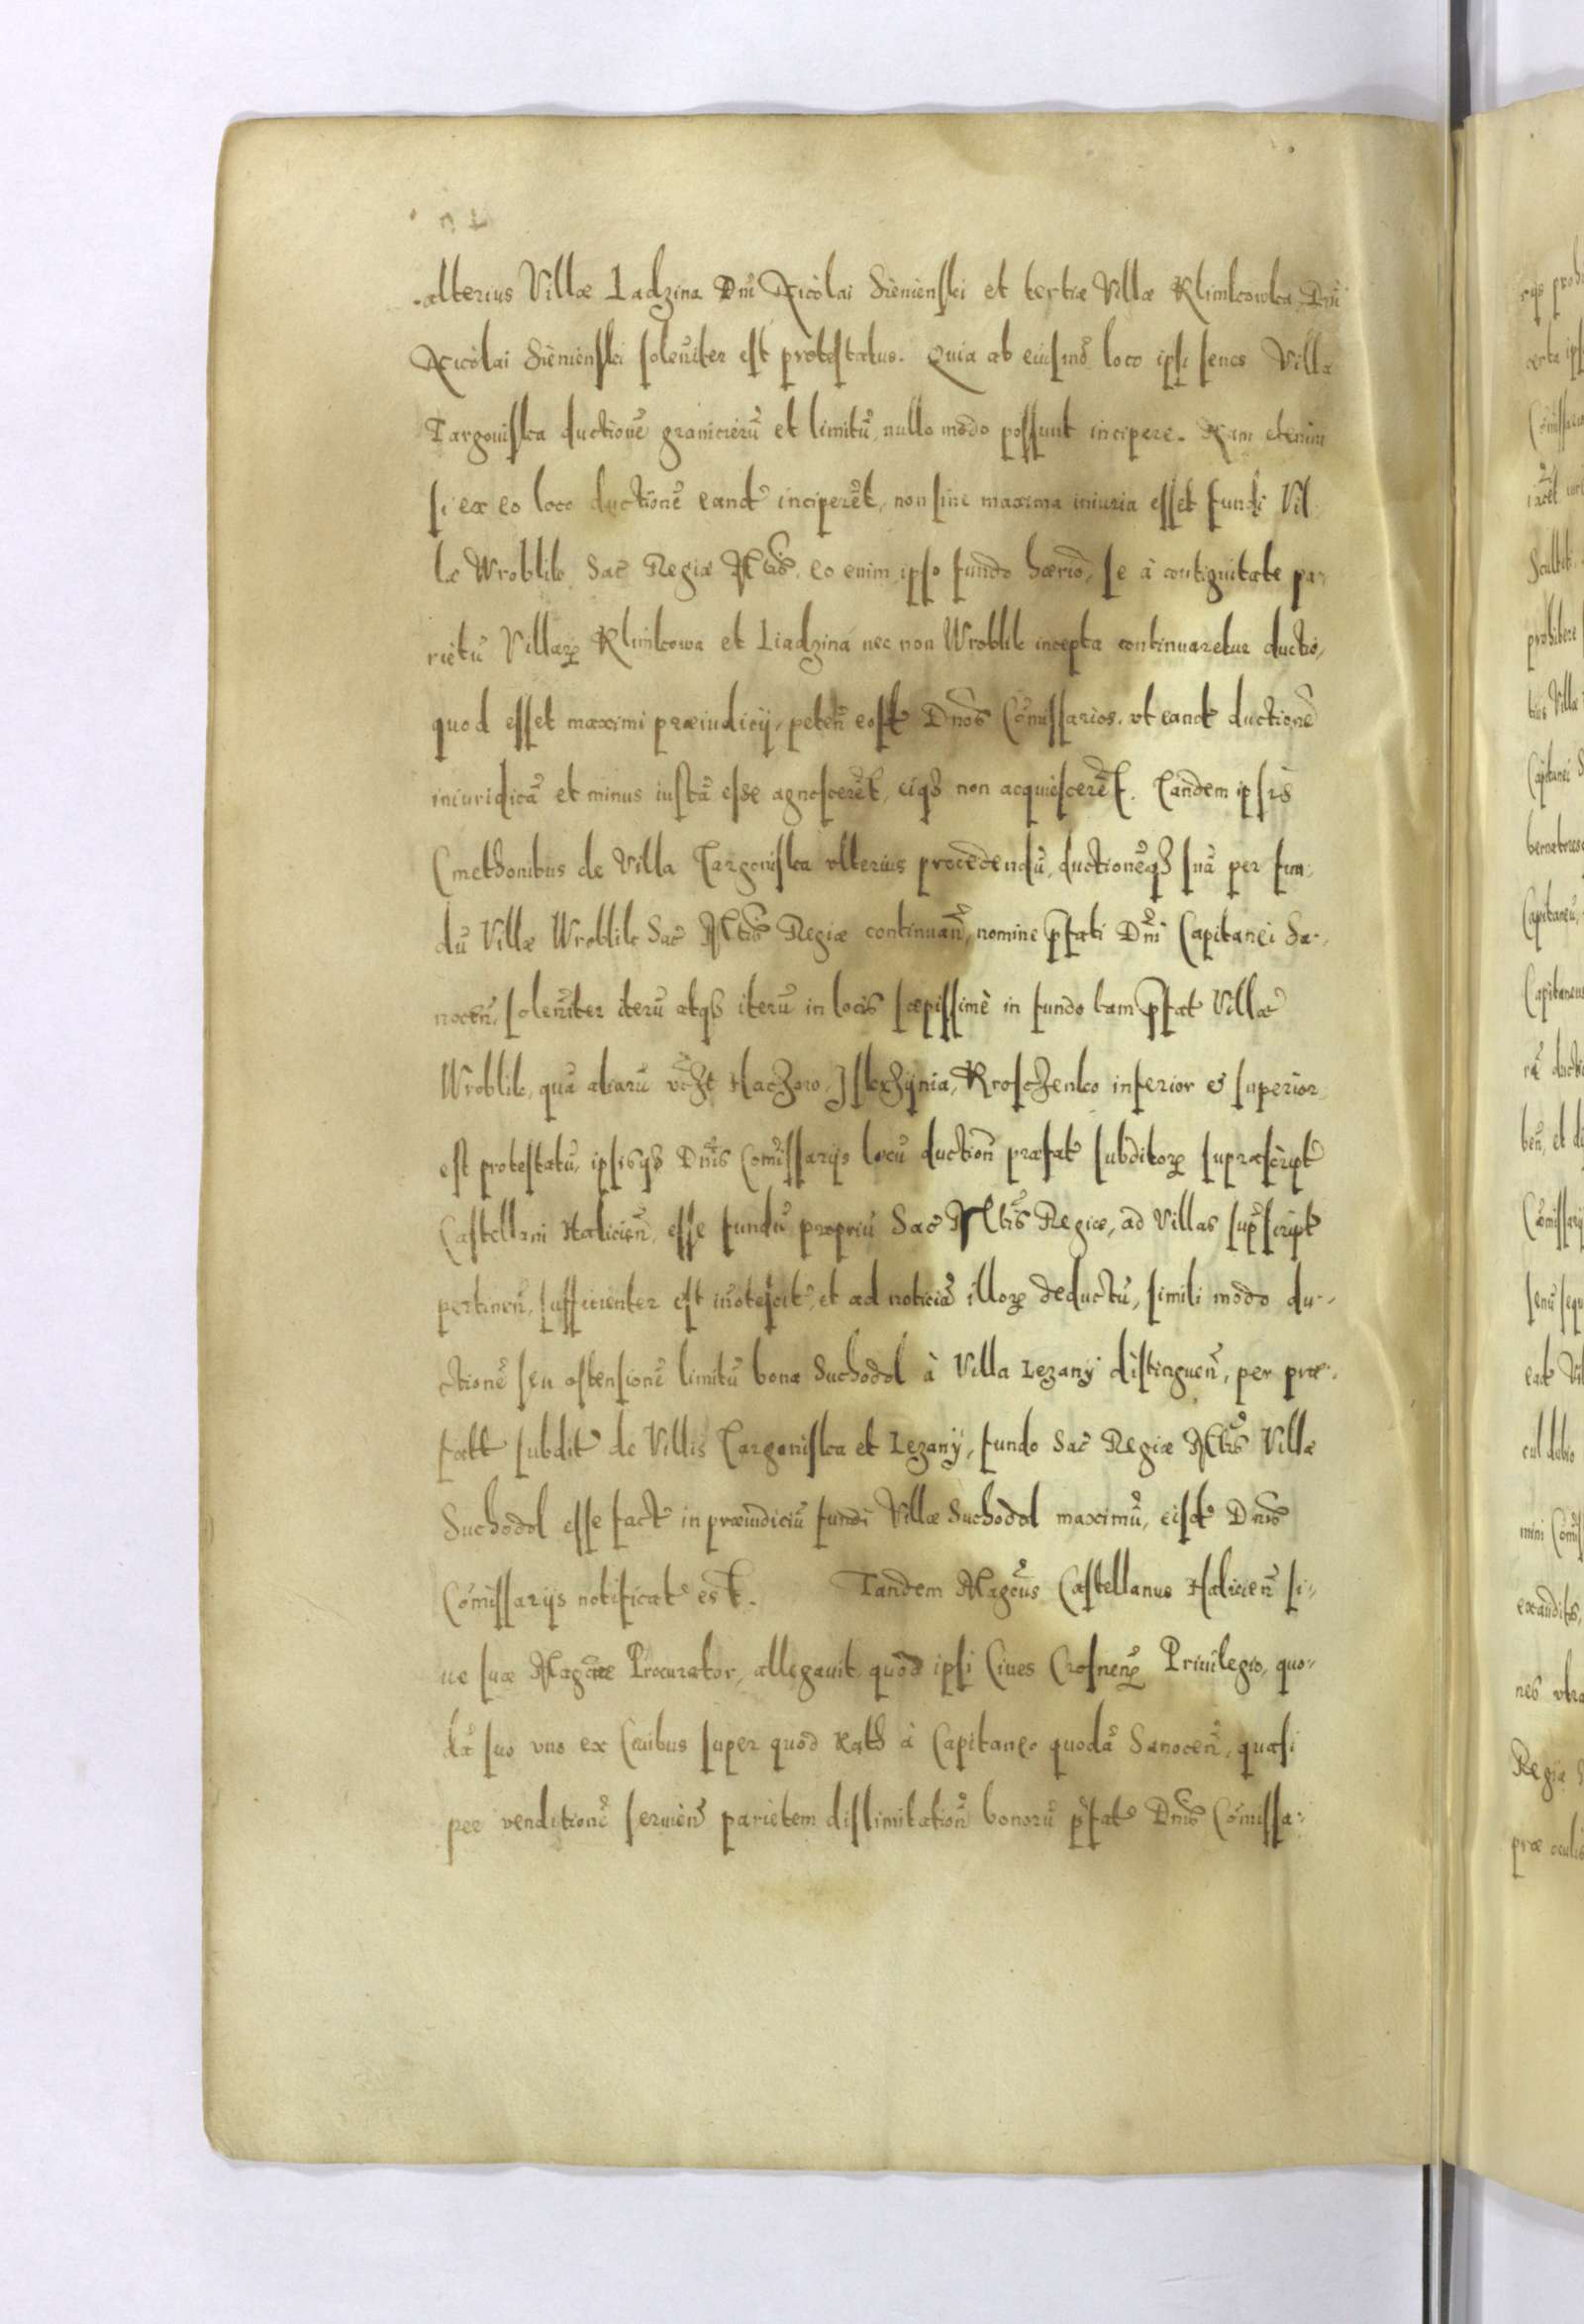 alterius Villæ Ladzina Dni Nicolai Sienienski et tertiæ Villæ Klimkowka Dni
Nicolai Sienienski soleniter est protestatus. Quia ab eiusmo loco ipsi senes Villæ
Targowiska ductione granicieru et limitu, nullo modo possunt incipere. Nam etenim
si ex eo loco ductione eand inciperet, non sine maxima iniuria esset fundi Vil
læ Wroblik Sac Regiæ Mtis. eo enim ipso fundo se à contiguitate pa
rietu Villar Klimkowa et Liadzina nec non Wroblik incepta continuaretur ductio,
quod esset maximi præiudicij, peten eosd Dnos Comissarios. vt eand ductione
iniuridica et minus iusta esse agnoscerēt, eiqȝ non acquiescerēt. Tandem ipsis
Cmethonibus de Villa Targowiska vlterius procedendu, ductioneqȝ sua per fun
du Villæ Wroblik Sac Mtis Regiæ continuan, nomine pfati Dni Capitanei Sa-
nocen, soleniter iteru atqȝ iteru in locis sæpissimè in fundo tam pfat Villæ
Wroblik, qua aliaru vcȝt Haczow, Iskrzynia, Kroschenko inferior & superior
est protestatu, ipsisqȝ Dnis Comissarijs locu duction præfat subditor supræscript
Castellani Halicien, esse fundu propriu Sac Mtis Regiæ, ad Villas supscript
pertinen, sufficienter est inotescit, et ad noticia illor deductu, simili modo du-
ctione seu ostensione limitu bona Suchodol à Villa Lezany distinguen, per præ-
fatt subdit de Villis Targowiska et Lezany, fundo Sac Regiæ Mtis Villæ
Suchodol esse fact in præiudiciu fundi Villæ Suchodol maximu, eisd Dnis
Comissarijs notificat est. Tandem Magcus Castellanus Halicien si-
ue suæ Magcæ Procurator, allegauit quod ipsi Ciues Crosnen Priuilegio, quo-
da suo vno ex Ciuibus super quod à Capitaneo quoda Sanocen, quasi
per venditione seruien parietem dislimitation bonoru pfat Dnis Comissa-